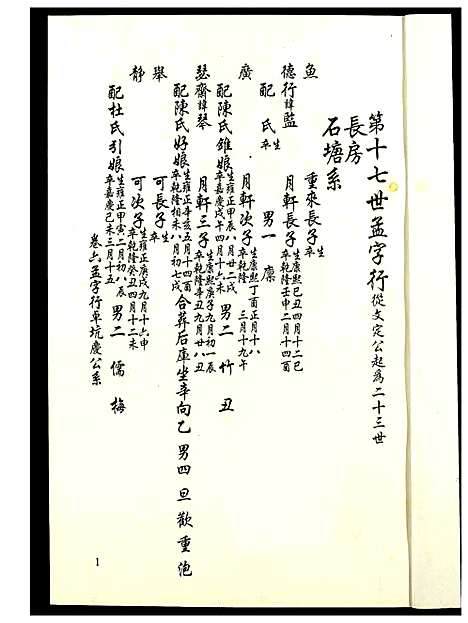 第十七世孟字行從文定公起為二十三世
長房
石塘系
魚 重來長子生卒
德行諱藍 月軒長子生康熙己丑四月十二巳卒乾隆壬申二月十四酉
配 氏生卒 男一 廩
廣 月軒次子生康熙丁酉正月十八卒乾隆 三月十九午
配陳氏錐娘生雍正甲辰八月廿二戌卒嘉慶戊午四月十六未 男二 竹 丑
瑟齋諱琴 月軒三子生康熙庚子九月初一辰卒乾隆辛丑九月廿八丑
配陳氏好娘生雍正辛亥五月十四酉卒乾隆 未八月初七戌 合葬后庫坐辛向乙 男四 旦 歡 重 滮
舉 可長子生卒
靜 可次子生雍正庚戌九月十六申卒乾隆癸丑四月十二未
配杜氏引娘生雍正甲寅二月初八辰卒嘉慶己未三月十五 男二 儒 梅
卷六孟字行卓坑慶公系
1